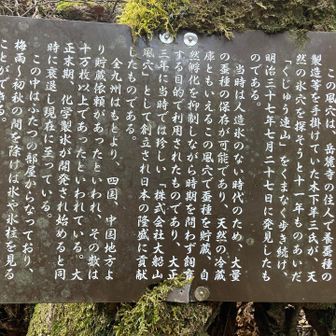 この風穴は、岳麓寺に住む蚕種の
製造等を手掛けていた木下年三氏が、天
然の氷穴を探そうと十一年ものあいだ
「くじゅう連山」をくまなく歩き続け、
明治三十七年七月二十七日に発見したも
のである。
当時は人造氷のない時代のため、大量
の蚕種の保存が可能であり、天然の冷蔵
庫ともいえるこの風穴で蚕種を貯蔵、自
然孵化を抑制しながら時期を問わず飼育
する目的で利用されたものであり、大正
三年に当時では珍しい「株式会社大船山
風穴」として創立され日本の隆盛に貢献
したものである。
全九州はもとより、四国、中国地方よ
り貯蔵依頼があったといわれ、その数は
十万枚以上であったといわれている。大
正末期、化学製氷の開発され始めると同
時に衰退し現在に至っている。
この中はふたつの部屋からなっており、
梅雨〜初秋の間を除けば氷や氷柱を見る
ことができる。